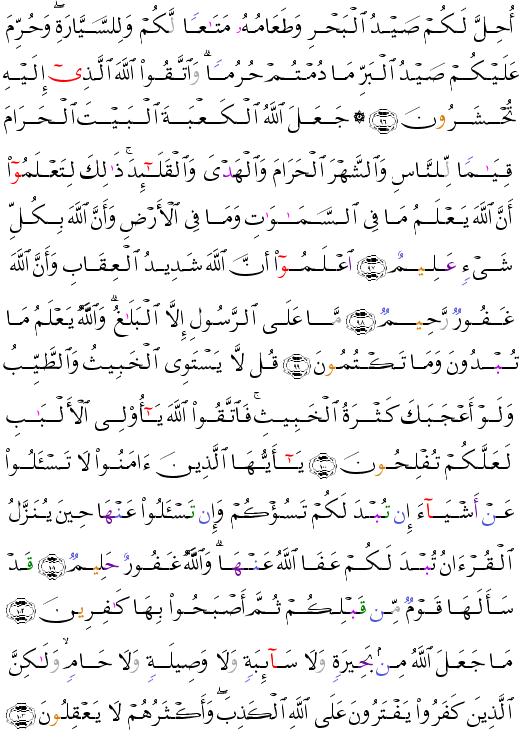 أُحِلَّ لَكُمْ صَيْدُ ٱلْبَحْرِ وَطَعَامُهُۥ مَتَـٰعًۭا لَّكُمْ وَلِلسَّيَّارَةِ ۖ وَحُرِّمَ
عَلَيْكُمْ صَيْدُ ٱلْبَرِّ مَا دُمْتُمْ حُرُمًۭا ۗ وَٱتَّقُوا۟ ٱللَّهَ ٱلَّذِىٓ إِلَيْهِ
تُحْشَرُونَ ﴿٩٦﴾ ۞ جَعَلَ ٱللَّهُ ٱلْكَعْبَةَ ٱلْبَيْتَ ٱلْحَرَامَ
قِيَـٰمًۭا لِّلنَّاسِ وَٱلشَّهْرَ ٱلْحَرَامَ وَٱلْهَدْىَ وَٱلْقَلَـٰٓئِدَ ۚ ذَٰلِكَ لِتَعْلَمُوٓا۟
أَنَّ ٱللَّهَ يَعْلَمُ مَا فِى ٱلسَّمَـٰوَٰتِ وَمَا فِى ٱلْأَرْضِ وَأَنَّ ٱللَّهَ بِكُلِّ
شَىْءٍ عَلِيمٌ ﴿٩٧﴾ ٱعْلَمُوٓا۟ أَنَّ ٱللَّهَ شَدِيدُ ٱلْعِقَابِ وَأَنَّ ٱللَّهَ
غَفُورٌۭ رَّحِيمٌۭ ﴿٩٨﴾ مَّا عَلَى ٱلرَّسُولِ إِلَّا ٱلْبَلَـٰغُ ۗ وَٱللَّهُ يَعْلَمُ مَا
تُبْدُونَ وَمَا تَكْتُمُونَ ﴿٩٩﴾ قُل لَّا يَسْتَوِى ٱلْخَبِيثُ وَٱلطَّيِّبُ
وَلَوْ أَعْجَبَكَ كَثْرَةُ ٱلْخَبِيثِ ۚ فَٱتَّقُوا۟ ٱللَّهَ يَـٰٓأُو۟لِى ٱلْأَلْبَـٰبِ
لَعَلَّكُمْ تُفْلِحُونَ ﴿١٠٠﴾ يَـٰٓأَيُّهَا ٱلَّذِينَ ءَامَنُوا۟ لَا تَسْـَٔلُوا۟
عَنْ أَشْيَآءَ إِن تُبْدَ لَكُمْ تَسُؤْكُمْ وَإِن تَسْـَٔلُوا۟ عَنْهَا حِينَ يُنَزَّلُ
ٱلْقُرْءَانُ تُبْدَ لَكُمْ عَفَا ٱللَّهُ عَنْهَا ۗ وَٱللَّهُ غَفُورٌ حَلِيمٌۭ ﴿١٠١﴾ قَدْ
سَأَلَهَا قَوْمٌۭ مِّن قَبْلِكُمْ ثُمَّ أَصْبَحُوا۟ بِهَا كَـٰفِرِينَ ﴿١٠٢﴾
مَا جَعَلَ ٱللَّهُ مِنۢ بَحِيرَةٍۢ وَلَا سَآئِبَةٍۢ وَلَا وَصِيلَةٍۢ وَلَا حَامٍۢ ۙ وَلَـٰكِنَّ
ٱلَّذِينَ كَفَرُوا۟ يَفْتَرُونَ عَلَى ٱللَّهِ ٱلْكَذِبَ ۖ وَأَكْثَرُهُمْ لَا يَعْقِلُونَ ﴿١٠٣﴾